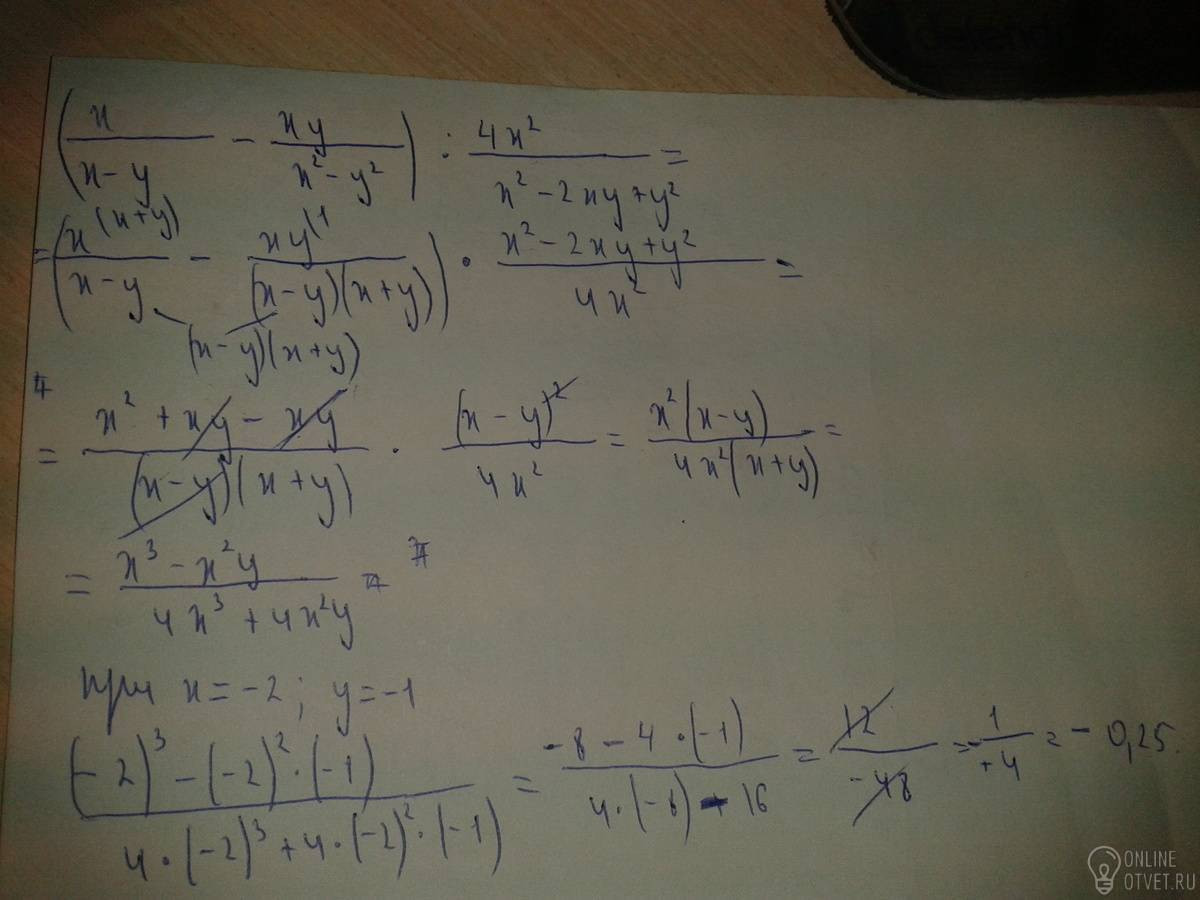 defend
(x/(x-y) - xy/(x²-y²)) : 4x²/(x²-2xy+y²) =
= (x^(x+y)/(x-y) - xy^(1/((x-y)(x+y))) · (x²-2xy+y²)/4x² =
(x-y)(x+y)
= (x²+xy-xy)/((x-y)(x+y)) · (x-y)²/4x² = x²(x-y)/(4x²(x+y)) =
= (x³-x²y)/(4x³+4x²y)
при x=-2; y=-1
((-2)³-(-2)²·(-1))/(4·(-2)³+4·(-2)²·(-1)) = (-8-4·(-1))/(4·(-8)-16) = 12/-48 = -1/+4 = -0,25.
ONLINE
OTVET.RU